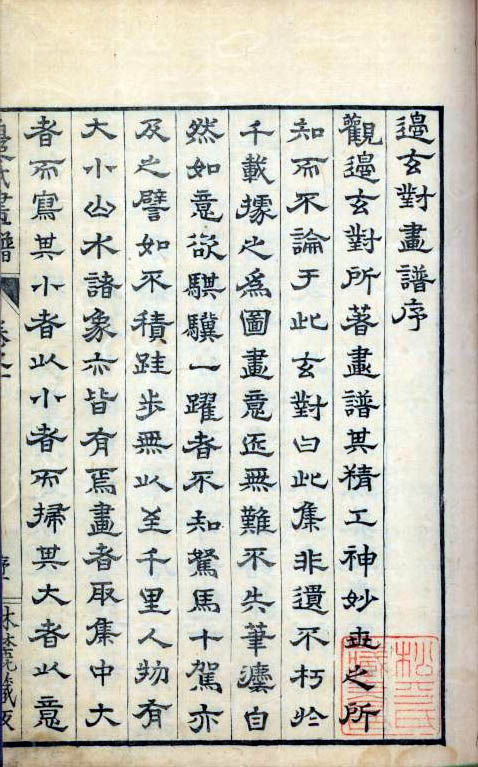 邊玄對畫譜序
觀邊玄對所著畫譜其精工神妙世之所
知而不論于此玄對曰此集非遺不朽於
千載據之為圖畫意匠無難不失筆灋自
然如意欲騏驥一躍者不知駑馬十駕亦
及之譬如不積跬步無以至千里人物有
大小山水諸象亦皆有焉畫者取集中大
者而寫其小者以小者而掃其大者以意
邊氏畫譜 卷之一 序一